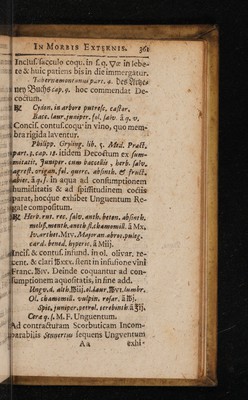 IN MORBIS EXTERNIS. 361
Incisis sacculo coqu. in s. q. in lebe-
te & huic patiens bis in die immergatur.
Tabernæmontanus part. 2. Des Artze-
ney Buchs cap. 9. hoc commendat De-
coctum.
in arbore putresc. castor.
Bacc. laur. juniper. fol. salv. à q. v.
Concis. contus. coqu in vino, quo mem-
bra rigida laventur.
Philipp. Gryling. lib. 5. Med. Pract.
part. 3. cap. 12. itidem Decoctum ex sum-
mitatib. juniper. cum baccalis, herb. salv.
agrest. origan. ful. querc. absinth. & fruct.
abiet. à q. s. In aqua ad consumptionem
humiditatis & ad spissitudinem coctis
parat, hocque exhibet Unguentum Re-
gale compositum.
Herb. rut. ror. salv. anth. beton. absinth.
meliss. menth. anth. fl. chamomill. à Mx.
Iv. arthet. Mrv. Majoran. abrot. puleg.
card. bened. hyperic. à Miij.
Incis. & contus. infund. in ol. olivar. re-
cent. & clari stent in infusione vini
Franc. Deinde coquantur ad con-
sumptionem aquositatis, in fine add.
lumbr.
Ol. chamomill. vulpin. rosar. à
Spic. juniper. petrol. terebinth. à
Ceræ q. s. M. F. Unguentum.
Ad contracturam Scorbuticam Incom-
parabilis Sennertus sequens Ungventum
Aa exhi-